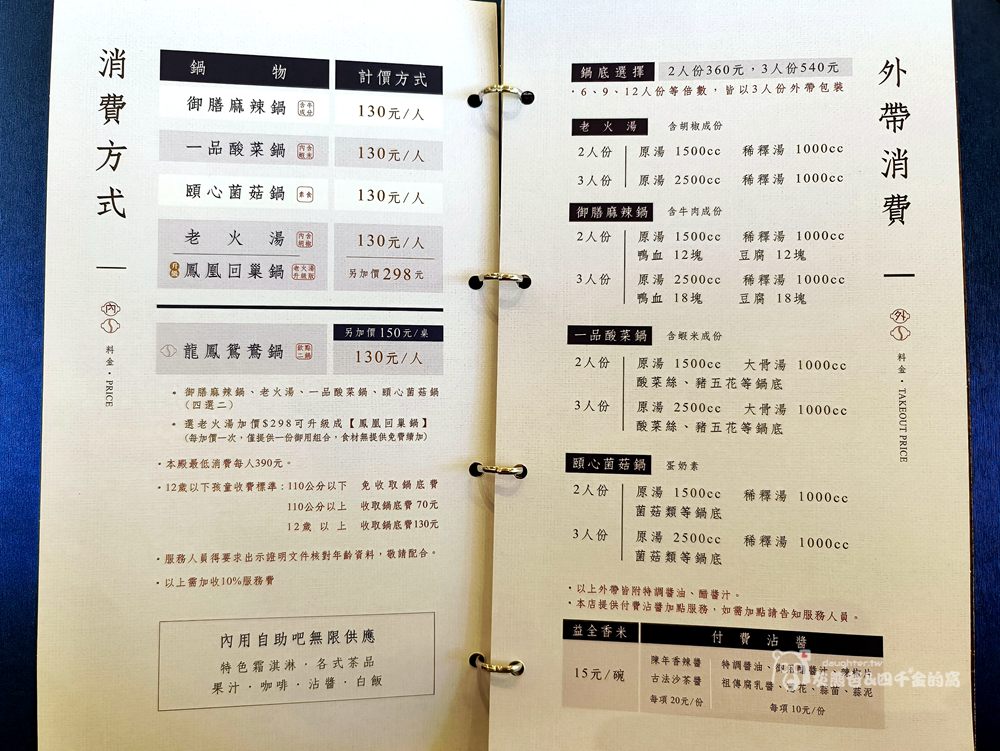 消費方式
內
料金・PRICE
鍋物 計價方式
御膳麻辣鍋 含牛成分 130元/人
一品酸菜鍋 內含蝦米 130元/人
頤心菌菇鍋 素食 130元/人
老火湯 內含胡椒 130元/人
升級 鳳凰回巢鍋 老火湯升級版 另加價298元
另加價150元/桌
龍鳳鴛鴦鍋 欽點二鍋 130元/人
・御膳麻辣鍋、老火湯、一品酸菜鍋、頤心菌菇鍋
（四選二）
・選老火湯加價$298可升級成【鳳凰回巢鍋】
(每加價一次，僅提供一份御用組合，食材無提供免費續加)
・本殿最低消費每人390元。
・12歲以下孩童收費標準：110公分以下 免收取鍋底費
110公分以上 收取鍋底費 70元
12歲以上 收取鍋底費130元
・服務人員得要求出示證明文件核對年齡資料，敬請配合。
・以上需加收10%服務費
內用自助吧無限供應
特色霜淇淋・各式茶品
果汁・咖啡・沾醬・白飯
外帶消費
外
料金・TAKEOUT PRICE
鍋底選擇 2人份360元，3人份540元
・6、9、12人份等倍數，皆以3人份外帶包裝
老火湯 含胡椒成份
2人份 原湯 1500cc 稀釋湯 1000cc
3人份 原湯 2500cc 稀釋湯 1000cc
御膳麻辣鍋 含牛肉成份
2人份 原湯 1500cc 稀釋湯 1000cc
鴨血 12塊 豆腐 12塊
3人份 原湯 2500cc 稀釋湯 1000cc
鴨血 18塊 豆腐 18塊
一品酸菜鍋 含蝦米成份
2人份 原湯 1500cc 大骨湯 1000cc
酸菜絲、豬五花等鍋底
3人份 原湯 2500cc 大骨湯 1000cc
酸菜絲、豬五花等鍋底
頤心菌菇鍋 蛋奶素
2人份 原湯 1500cc 稀釋湯 1000cc
菌菇類等鍋底
3人份 原湯 2500cc 稀釋湯 1000cc
菌菇類等鍋底
・以上外帶皆附特調醬油、醋醬汁。
・本店提供付費沾醬加點服務，如需加點請告知服務人員。
益全香米 付費沾醬
15元/碗
陳年香辣醬
古法沙茶醬
每項 20元/份
特調醬油、
祖傳腐乳醬、花、蒜菌、蒜泥
每項 10元/份
daughter.tw
灰鴿爸&四千金的窩